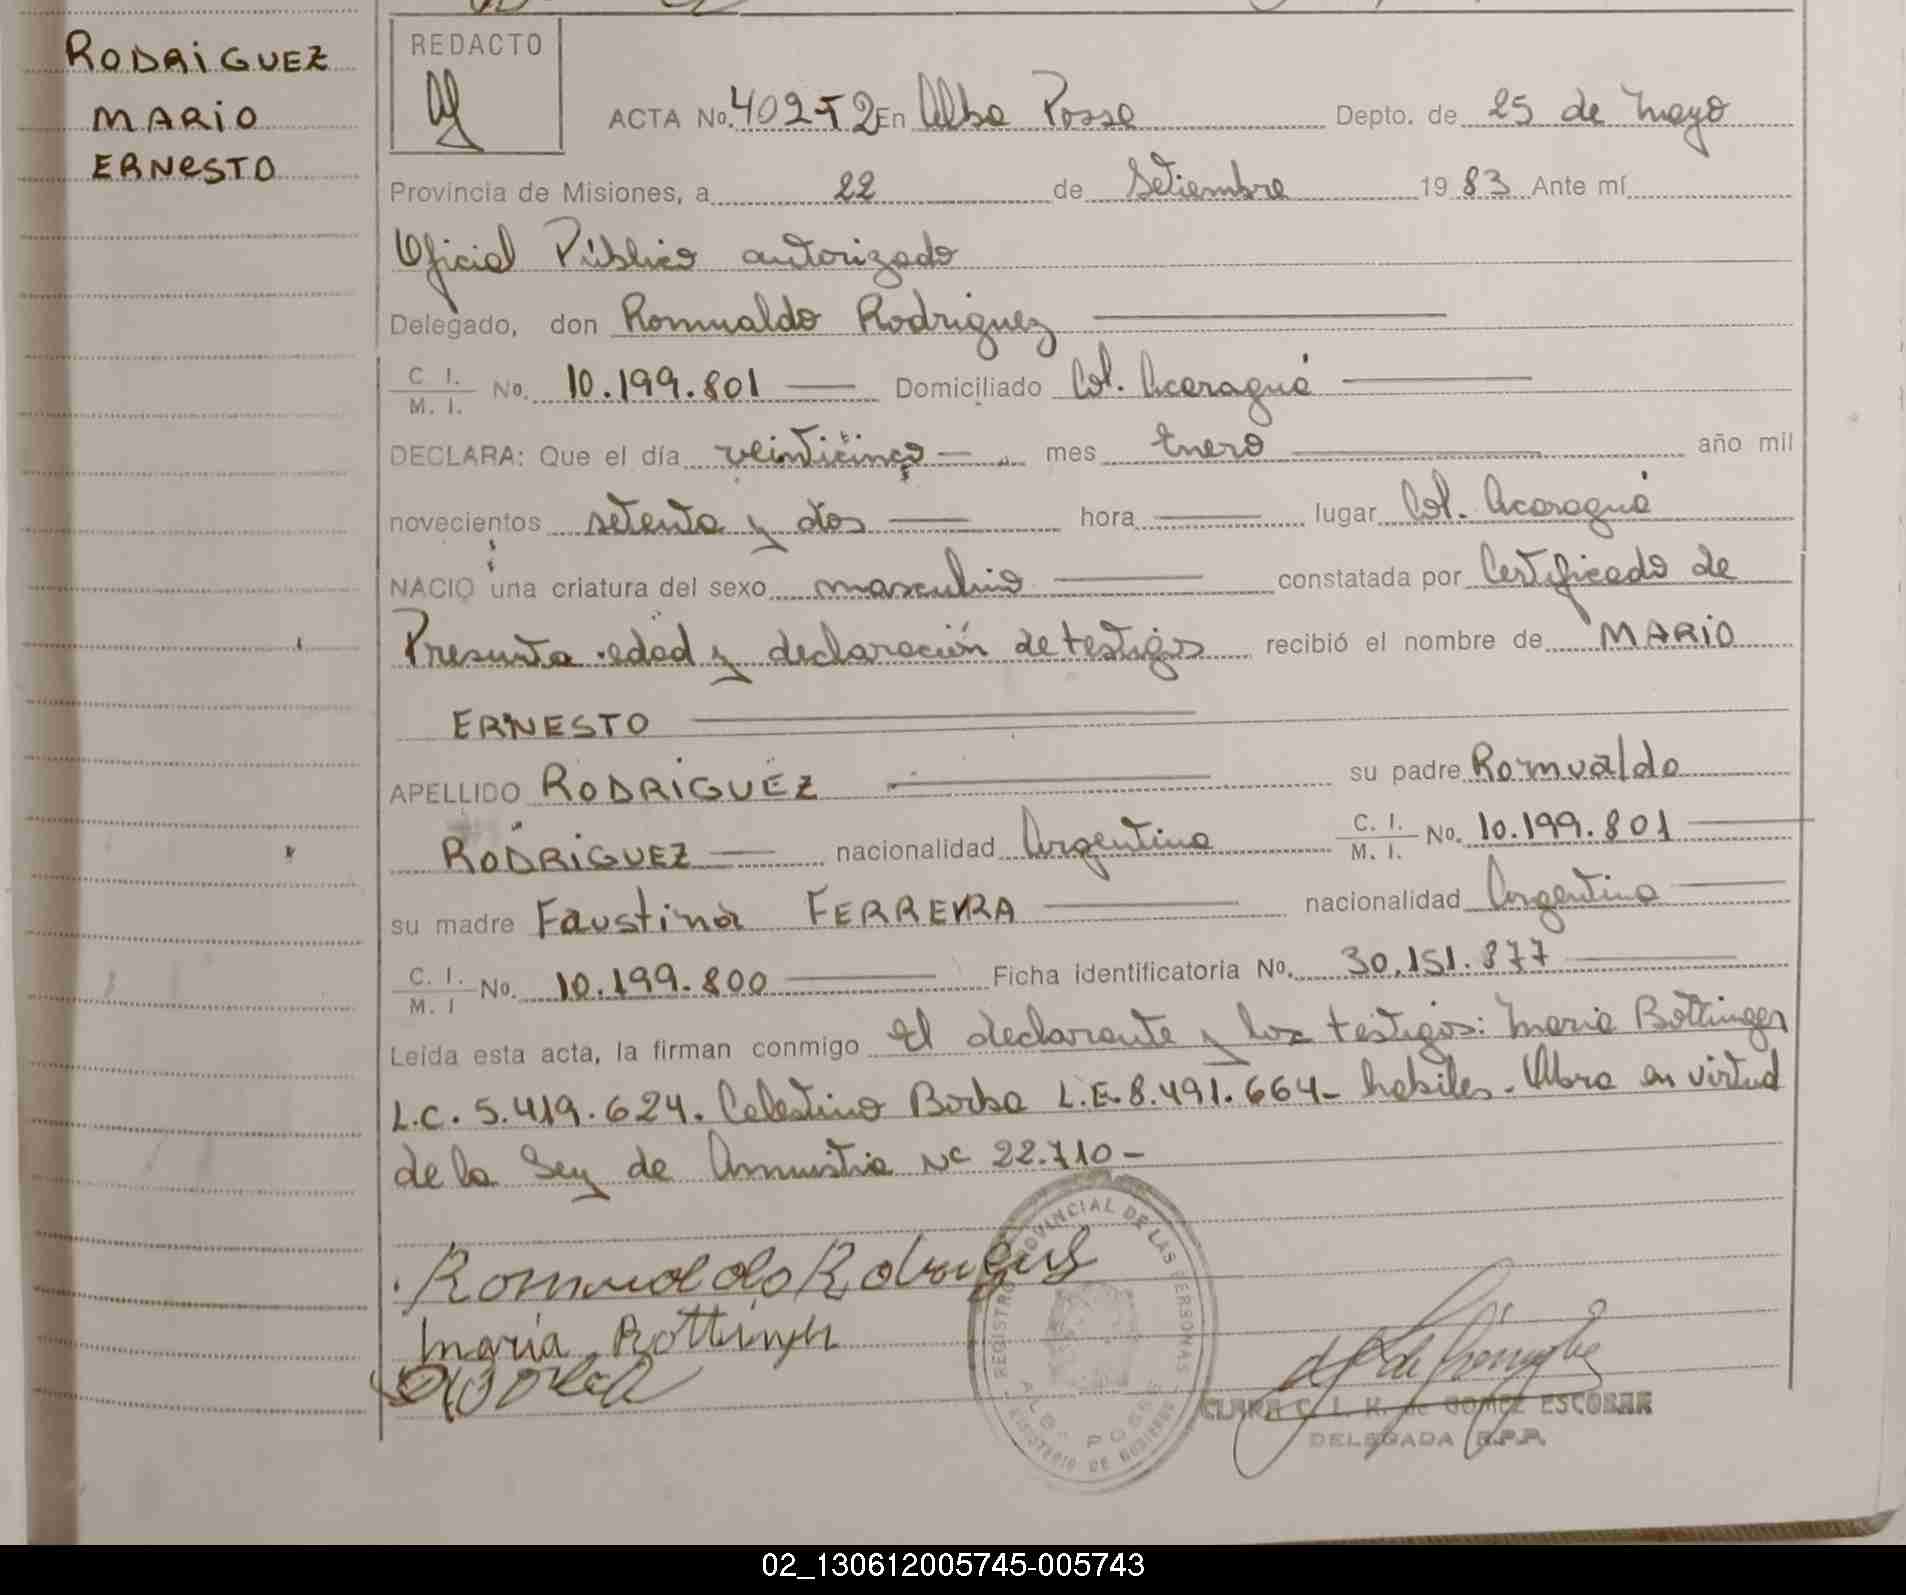 RODRIGUEZ
MARIO
ERNESTO
REDACTO
ACTA No. 402 T2 En Alba Posse Depto. de 25 de Mayo
Provincia de Misiones, a 22 de Setiembre 1983 Ante mí
Oficial Público autorizado
Delegado, don Romualdo Rodriguez
C. I. / M. I. No. 10.199.801 Domiciliado Col. Acaragué
DECLARA: Que el día veinticinco mes Enero año mil
novecientos setenta y dos hora lugar Col. Acaragué
NACIO una criatura del sexo masculino constatada por Certificado de
Presunta edad y declaración de testigos recibió el nombre de MARIO
ERNESTO
APELLIDO RODRIGUEZ su padre Romualdo
RODRIGUEZ nacionalidad Argentina C. I. / M. I. No. 10.199.801
su madre Faustina FERREYRA nacionalidad Argentina
C. I. / M. I No. 10.199.800 Ficha identificatoria No. 30.151.877
Leída esta acta, la firman conmigo El declarante y los testigos: Maria Bottinger
L.C. 5.419.624. Celestino Borba L.E. 8.491.664- habiles. Labra en virtud
de la Ley de Amnistia Nº 22.710-
Romualdo Rodriguez
Maria Bottinger
REGISTRO PROVINCIAL DE LAS PERSONAS
ALBA POSSE
MINISTERIO DE GOBIERNO
CLARA C. L. K. de GOMEZ ESCOBAR
DELEGADA R.P.P.
02_130612005745-005743